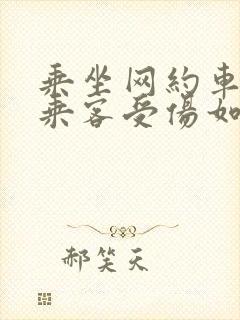 乘坐网約車
乘客受傷如
郝笑天